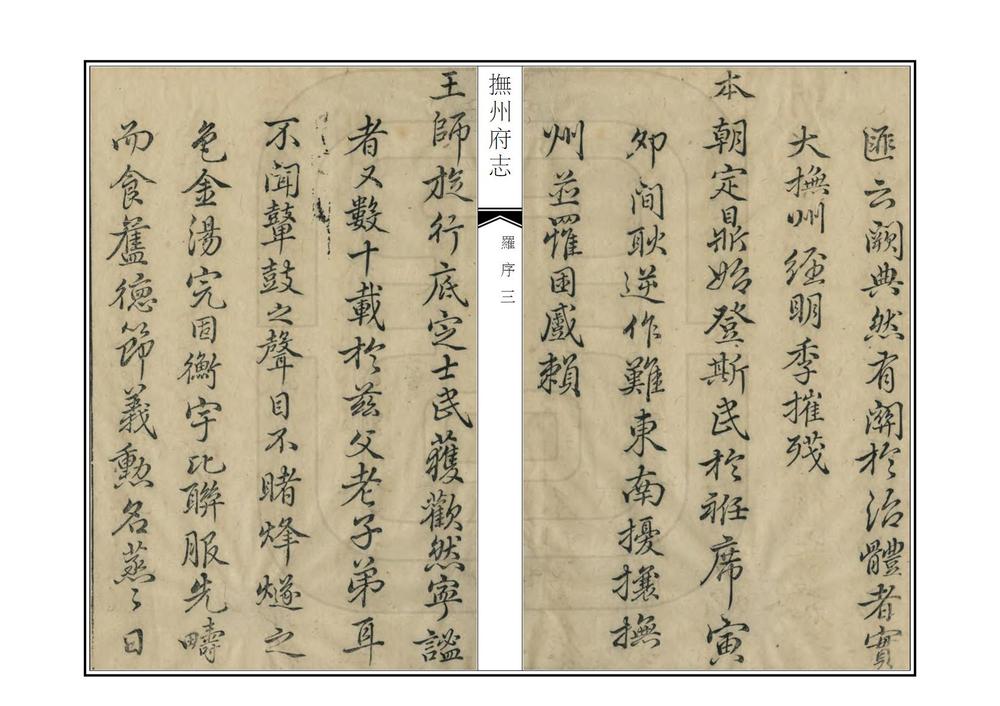 匪云闕典然有關於治體者實
大撫州經明季摧殘
本朝定鼎始登斯民於袵席寅
夘間耿逆作難東南擾攘撫
州並罹困慼賴
撫州府志
羅序
三
王師旋行底定士民獲歡然寧謐
者又數十載於茲父老子弟耳
不聞鼙鼓之聲目不睹烽燧之
色金湯完固衡宇比聯服先疇
而食舊德節義勲名蒸〻日